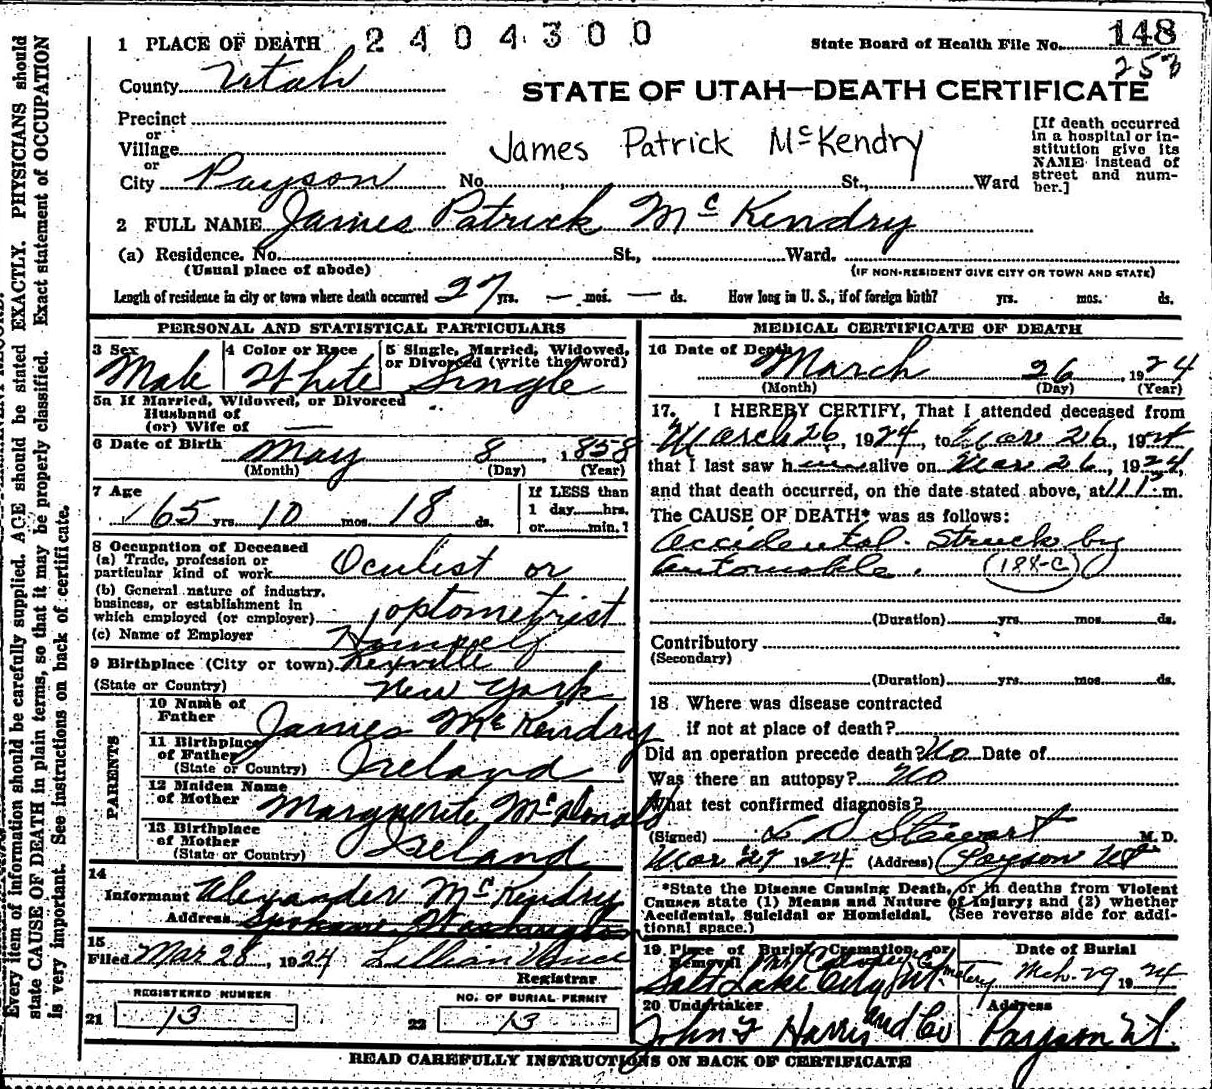 Every item of information should be carefully supplied. AGE should be stated EXACTLY. PHYSICIANS should
state CAUSE OF DEATH in plain terms, so that it may be properly classified. Exact statement of OCCUPATION
is very important. See instructions on back of certificate.
1 PLACE OF DEATH 2404300
State Board of Health File No. 148
253
County Utah
STATE OF UTAH—DEATH CERTIFICATE
Precinct
or
Village
or
City Payson No. St., Ward
James Patrick McKendry
[If death occurred
in a hospital or in-
stitution give its
NAME instead of
street and num-
ber.]
2 FULL NAME James Patrick McKendry
(a) Residence. No. St., Ward.
(Usual place of abode) (IF NON-RESIDENT GIVE CITY OR TOWN AND STATE)
Length of residence in city or town where death occurred 27 yrs. — mos. — ds. How long in U. S., if of foreign birth? yrs. mos. ds.
PERSONAL AND STATISTICAL PARTICULARS
3 Sex Male
4 Color or Race White
5 Single, Married, Widowed,
or Divorced (write the word)
Single
5a If Married, Widowed, or Divorced
Husband of
(or) Wife of —
6 Date of Birth May 8, 1858
(Month) (Day) (Year)
7 Age 65 yrs. 10 mos. 18 ds.
If LESS than
1 day hrs.
or min.?
8 Occupation of Deceased
(a) Trade, profession or
particular kind of work Oculist or
(b) General nature of industry,
business, or establishment in
which employed (or employer) optometrist
(c) Name of Employer
9 Birthplace (City or town)
(State or Country) New York
PARENTS
10 Name of
Father James McKendry
11 Birthplace
of Father
(State or Country) Ireland
12 Maiden Name
of Mother Marguerite McDonald
13 Birthplace
of Mother
(State or Country) Ireland
14
Informant Alexander McKendry
Address Spokane Washington
15
Filed Mar 28, 1924 Lillian
Registrar
REGISTERED NUMBER
21 13
NO. OF BURIAL PERMIT
22 13
MEDICAL CERTIFICATE OF DEATH
16 Date of Death March 26, 1924
(Month) (Day) (Year)
17. I HEREBY CERTIFY, That I attended deceased from
March 26, 1924, to Mar 26, 1924
that I last saw h alive on Mar 26, 1924,
and that death occurred, on the date stated above, at m.
The CAUSE OF DEATH* was as follows:
Accidental. Struck by
automobile. (188-C)
(Duration) yrs. mos. ds.
Contributory
(Secondary)
(Duration) yrs. mos. ds.
18 Where was disease contracted
if not at place of death?
Did an operation precede death? No Date of
Was there an autopsy? No
What test confirmed diagnosis?
(Signed) L D Stewart M. D.
Mar 27 1924 (Address) Payson Ut.
*State the Disease Causing Death, or in deaths from Violent
Causes state (1) Means and Nature of Injury; and (2) whether
Accidental, Suicidal or Homicidal. (See reverse side for addi-
tional space.)
19 Place of Burial, Cremation, or
Removal Mt. Calvary Cemetery
Salt Lake City Ut.
Date of Burial
Mch. 29 1924
20 Undertaker
John F Harris and Co
Address
Payson Ut.
READ CAREFULLY INSTRUCTIONS ON BACK OF CERTIFICATE